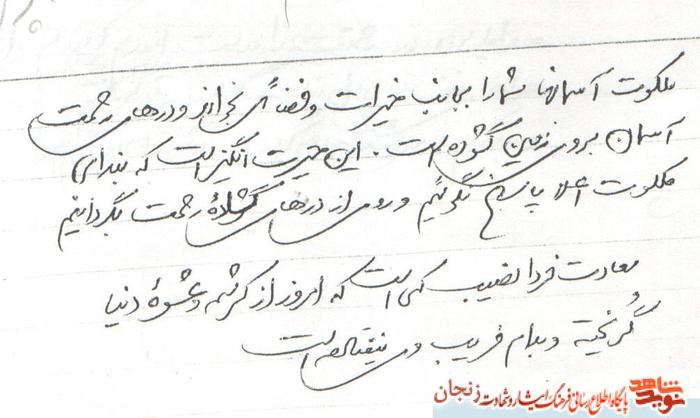 ملکوت آسمانها شما را بجانب خیرات و فضائی نجوا انز و درهای رحمت
آسمان بروی زمین گشوده است. این حیرت انگیز است که بندای
ملکوت اعلا پاسخ نگوئیم و روی از درهای گشادهٔ رحمت بگردانیم
سعادت فردا نصیب کسی است که امروز از کرشمه و عشوهٔ دنیا
گریخته و بدام فریب وی نیفتاده است
شاهد
نوید
پایگاه اطلاع رسانی فرهنگ ایثار و شهادت زنجان